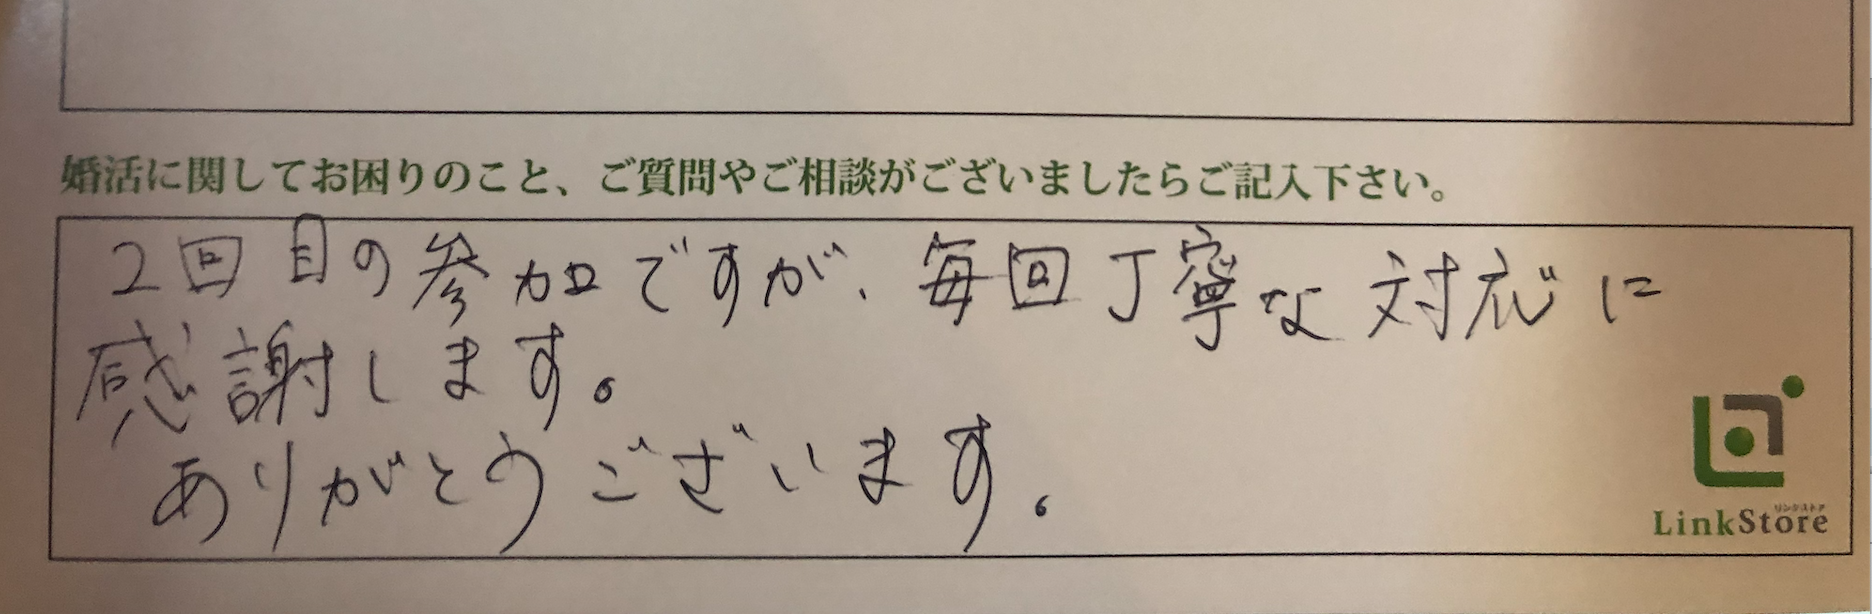 婚活に関してお困りのこと、ご質問やご相談がございましたらご記入下さい。
2回目の参加ですが、毎回丁寧な対応に
感謝します。
ありがとうございます。
リンクストア
LinkStore